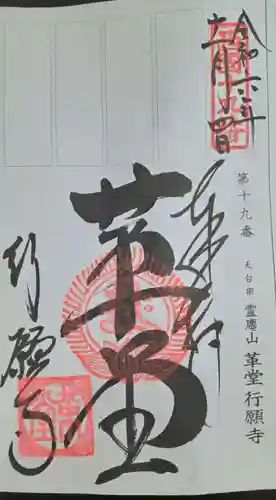 令和六年
十一月十四日
奉拝
第十九番 天台宗 霊麀山 革堂行願寺
革堂
行願寺